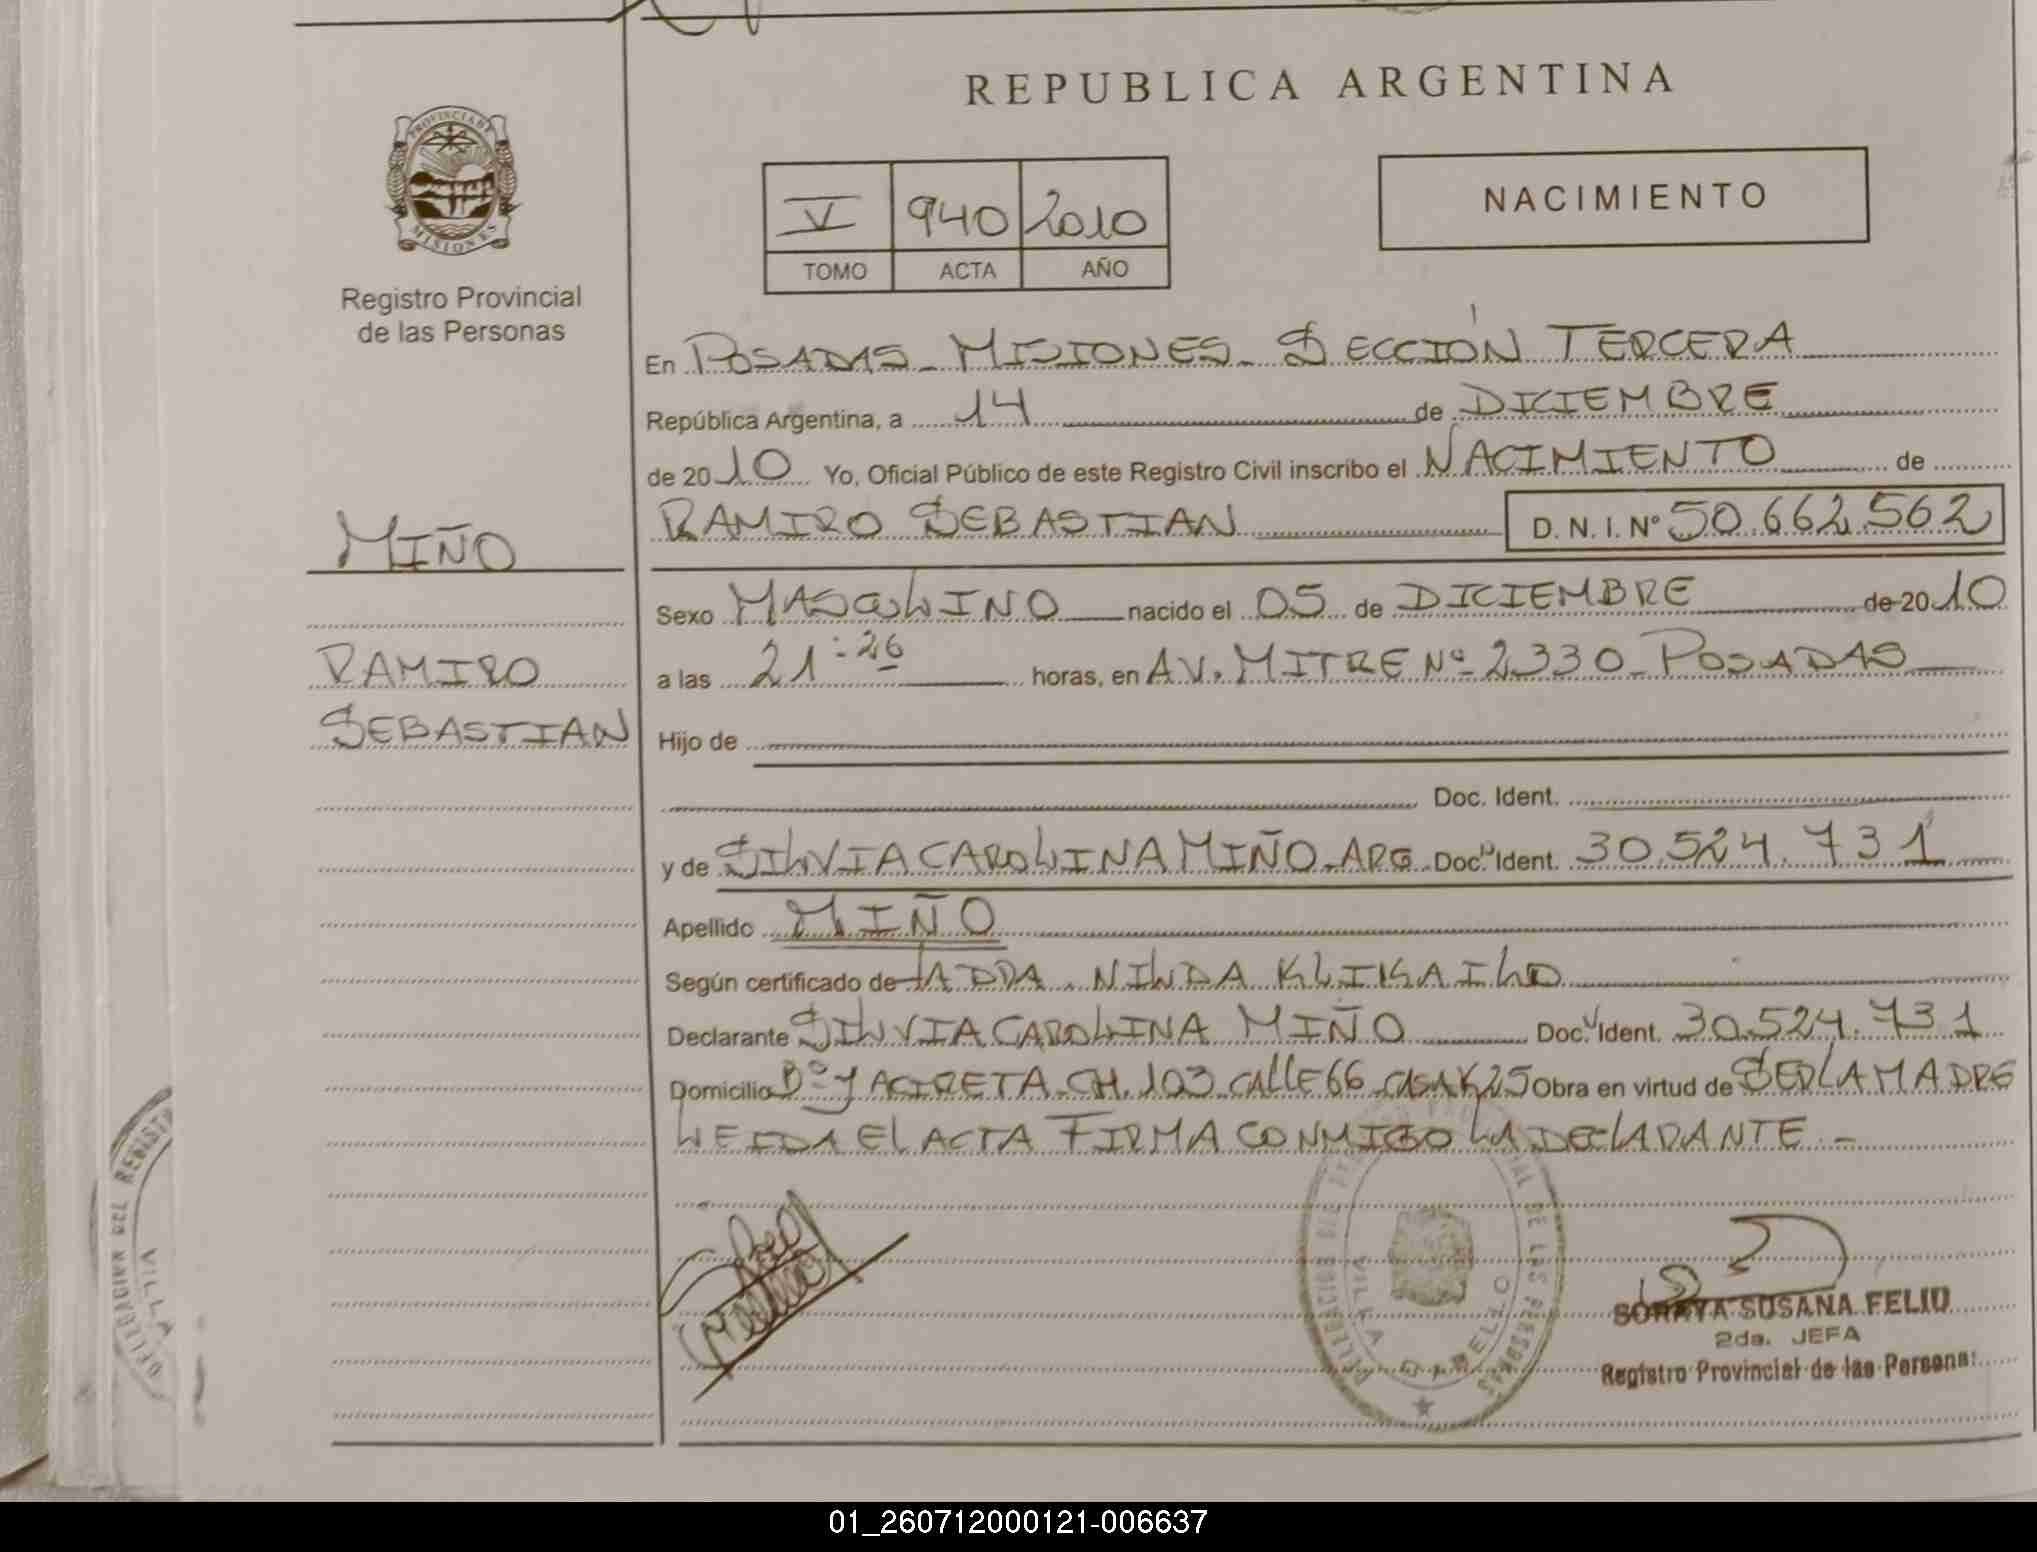 REPUBLICA ARGENTINA
PROVINCIA DE
MISIONES
Registro Provincial
de las Personas
V 940 2010
TOMO ACTA AÑO
NACIMIENTO
En POSADAS - MISIONES - SECCIÓN TERCERA
República Argentina, a 14 de DICIEMBRE
de 2010 Yo, Oficial Público de este Registro Civil inscribo el NACIMIENTO de
RAMIRO SEBASTIAN D. N. I. Nº 50.662.562
MIÑO
Sexo MASCULINO nacido el 05 de DICIEMBRE de 2010
RAMIRO
a las 21:26 horas, en AV. MITRE Nº 2330 - POSADAS
SEBASTIAN
Hijo de
Doc. Ident.
y de SILVIA CAROLINA MIÑO - ARG. Doc. Ident. 30.524.731
Apellido MIÑO
Según certificado de LA DRA. NILDA
Declarante SILVIA CAROLINA MIÑO Doc. Ident. 30.524.731
Domicilio Bº YACIRETA - CH. 103 - CALLE 66 - CASA K25 Obra en virtud de SER LA MADRE
LEIDA EL ACTA FIRMA CONMIGO LA DECLARANTE . -
DELEGACION DEL REGISTRO PROVINCIAL DE LAS PERSONAS
VILLA CABELLO
DELEGACION DEL REGIST
VILLA
SORAYA SUSANA FELIU
2da. JEFA
Registro Provincial de las Persona
01_260712000121-006637